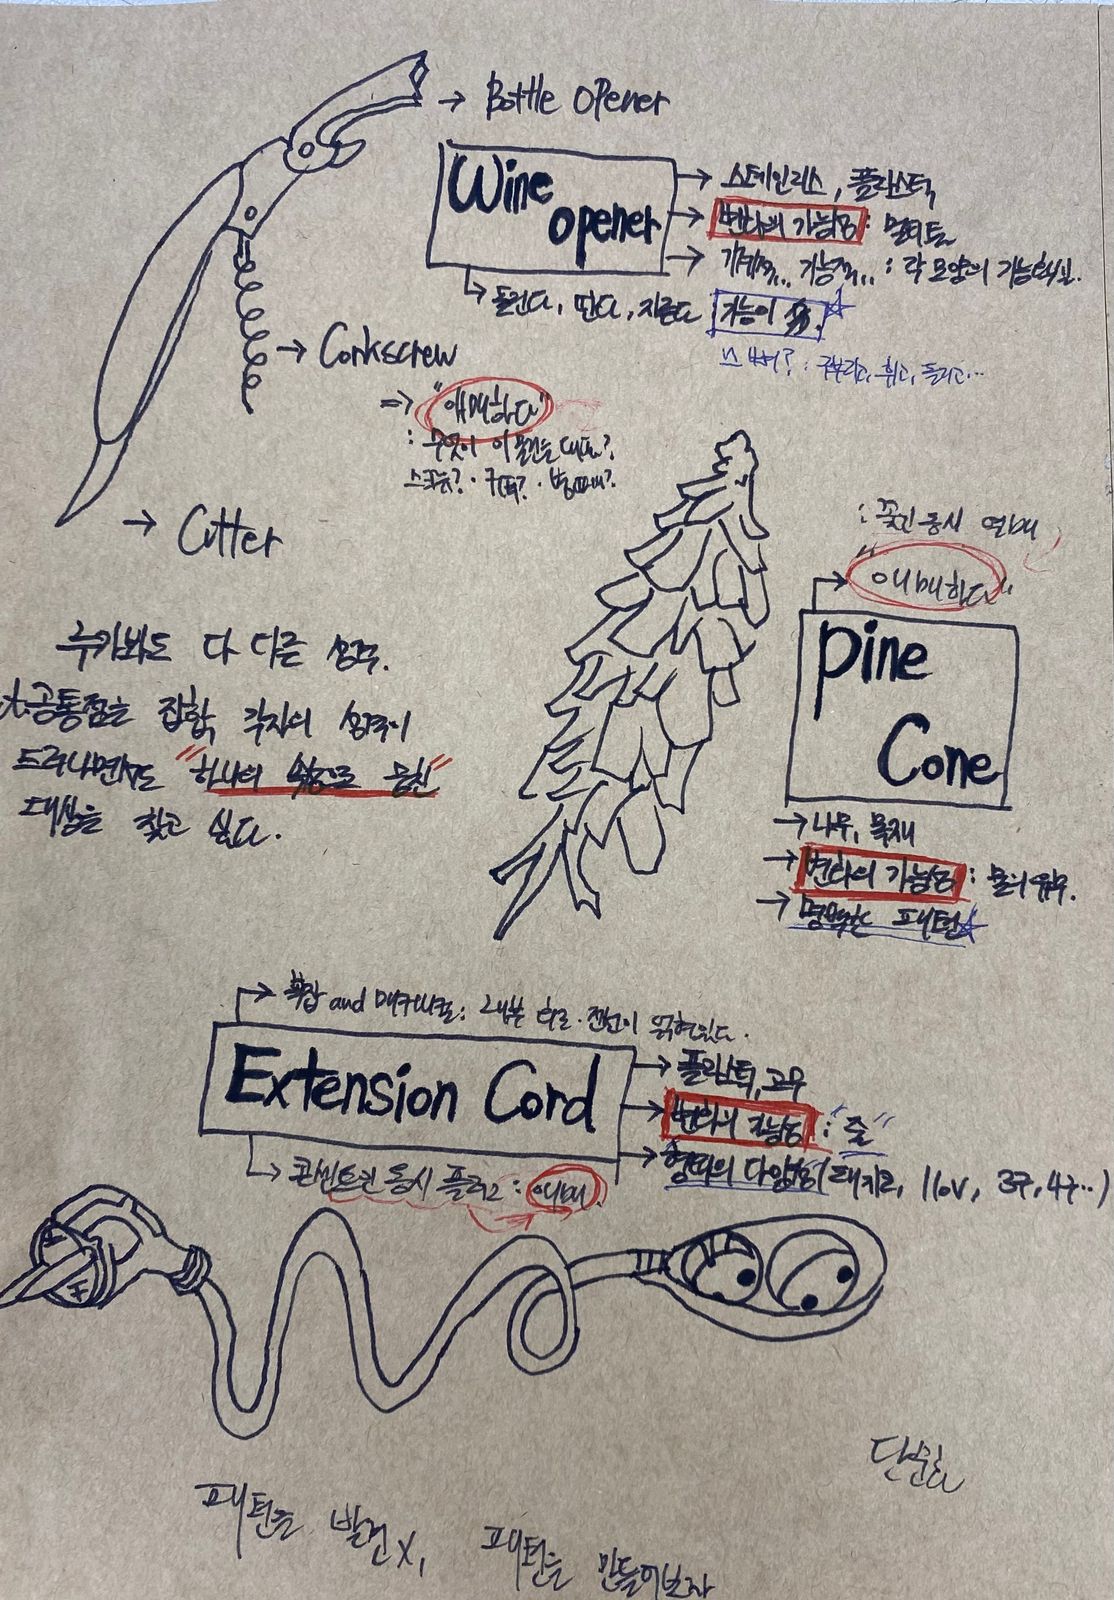 → Bottle opener
Wine
opener
→ 스테인리스, 플라스틱
→ 변화의 가능성 : 멀티툴
→ 기계적.., 기능적... : 각 모양의 기능
↳ 돌린다, 딴다, 자른다 기능이
구부리고, 휘고, 돌리고...
→ Corkscrew
⇒ "애매하다"
: 무엇이 이 물건을 대표?
스크류?
→ Cutter
: 꽃인 동시 열매
"애매하다"
Pine
Cone
→ 나무, 목재
→ 변화의 가능성 : 물의 유무.
→ 명확한 패턴
누가봐도 다 다른 성격.
공통점은 집합, 각자의 성격이
드러나면서도 "하나의 속성으로 뭉친"
대상을 찾고 싶다.
→ 복잡 and 메커니컬 : 내부 회로·전선이 얽혀있다.
Extension Cord
→ 플라스틱, 고무
→ 변화의 가능성 : "줄"
→ 형태의 다양성 (돼지코, 110V, 3구, 4구..)
↳ 콘센트인 동시 플러그 : 애매
단순화
패턴을 발견X, 패턴을 만들어보자